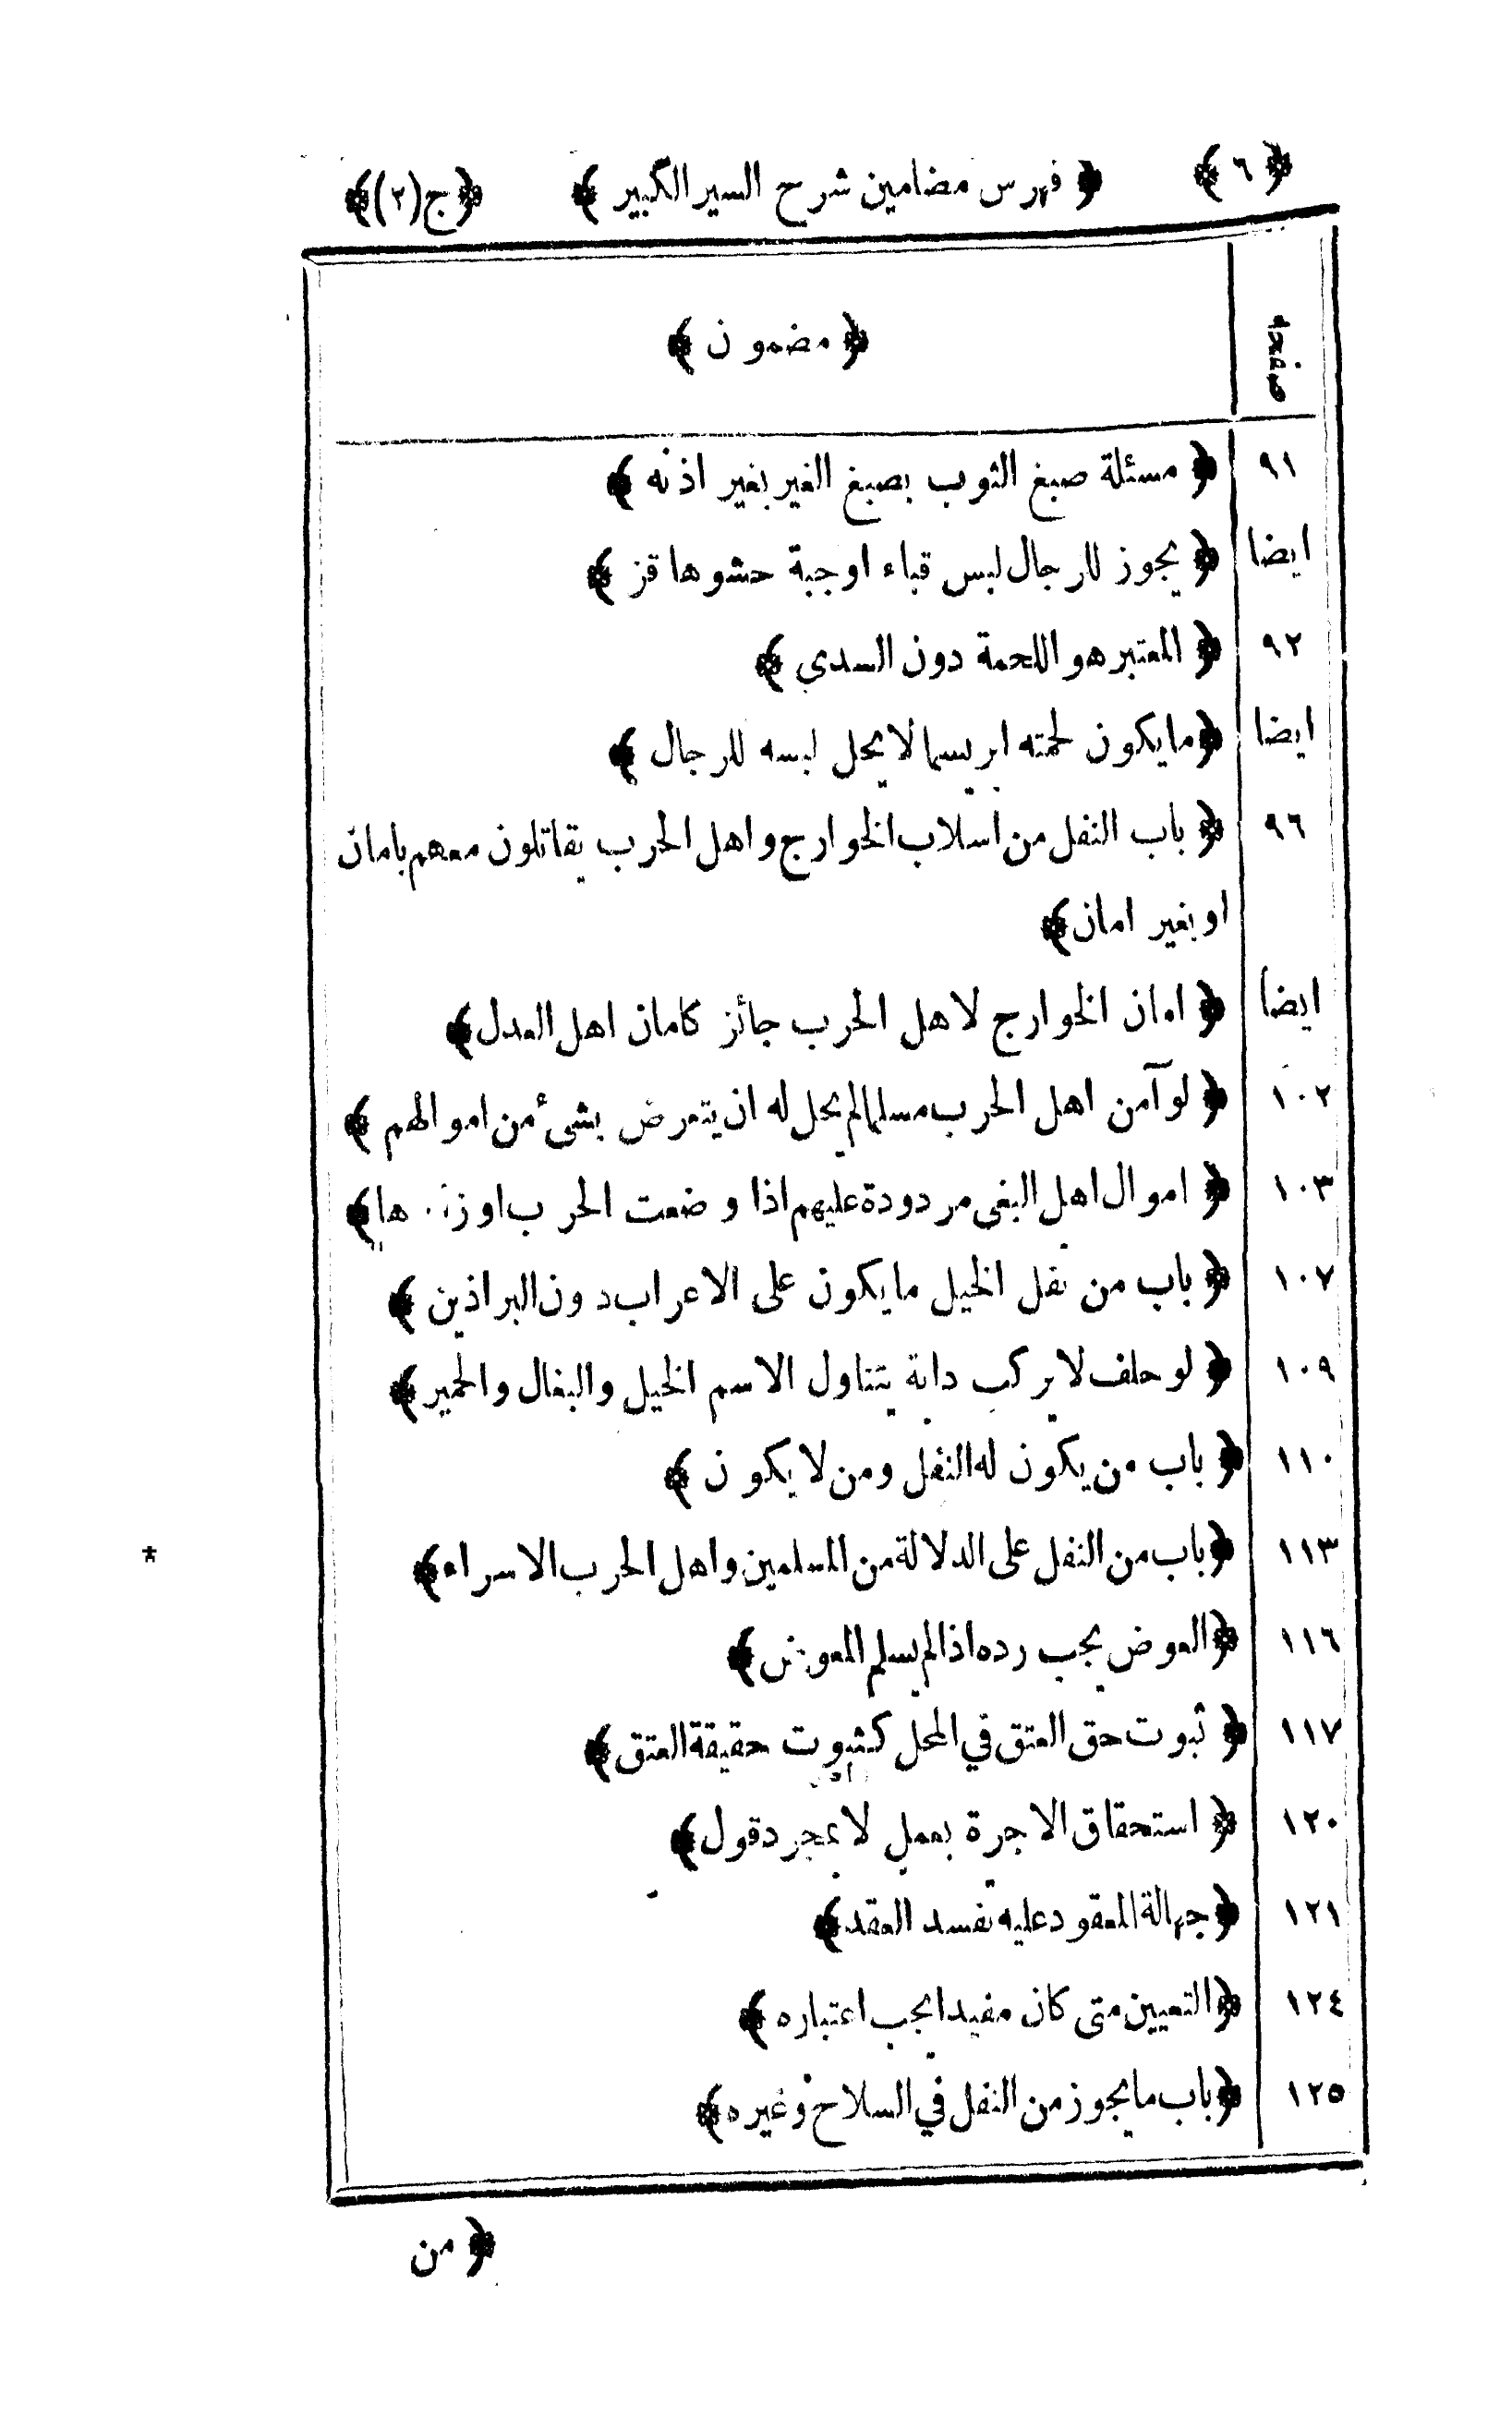 ﴿ ٦ ﴾ ﴿ فهرس مضامين شرح السير الكبير ﴾ ﴿ ج (٢) ﴾
صفحه ﴿ مضمون ﴾
٩١ ﴿ مسئلة صبغ الثوب بصبغ الغير بغير اذنه ﴾
ايضا ﴿ يجوز للرجال لبس قباء او جبة حشوها قز ﴾
٩٢ ﴿ المعتبر هو اللحمة دون السدى ﴾
ايضا ﴿ ما يكون لحمته ابريسما لا يحل لبسه للرجال ﴾
٩٦ ﴿ باب النفل من اسلاب الخوارج و اهل الحرب يقاتلون معهم بامان
او بغير امان ﴾
ايضا ﴿ امان الخوارج لاهل الحرب جائز كامان اهل العدل ﴾
١٠٢ ﴿ لو آمن اهل الحرب مسلما لم يحل له ان يتعرض بشئ من اموالهم ﴾
١٠٣ ﴿ اموال اهل البغى مردودة عليهم اذا وضعت الحرب ﴾
١٠٧ ﴿ باب من نفل الخيل ما يكون على الاعراب دون البراذين ﴾
١٠٩ ﴿ لو حلف لا يركب دابة يتناول الاسم الخيل والبغال والحمير ﴾
١١٠ ﴿ باب من يكون له النفل ومن لا يكون ﴾
١١٣ ﴿ باب من النفل على الدلالة من المسلمين واهل الحرب الاسراء ﴾
١١٦ ﴿ العوض يجب رده اذا لم يسلم المعوض ﴾
١١٧ ﴿ ثبوت حق العتق في المحل كثبوت حقيقة العتق ﴾
١٢٠ ﴿ استحقاق الاجرة بعمل لا بمجرد قول ﴾
١٢١ ﴿ جهالة المعقود عليه تفسد العقد ﴾
١٢٤ ﴿ التعيين متى كان مفيدا يجب اعتباره ﴾
١٢٥ ﴿ باب ما يجوز من النفل في السلاح وغيره ﴾
﴿ من